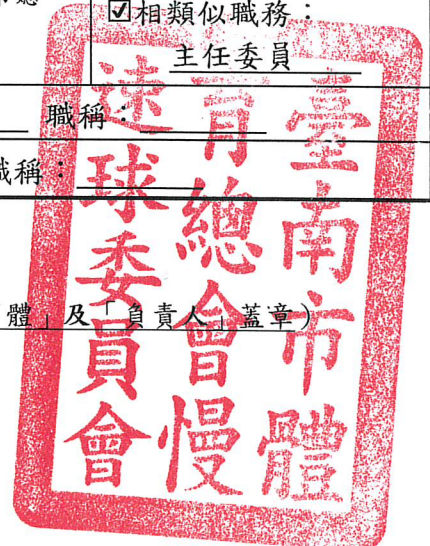 ☑相類似職務：
主任委員
職稱：
職稱：
體」及「負責人」蓋章)
臺南市體
育總會慢
速球委員會